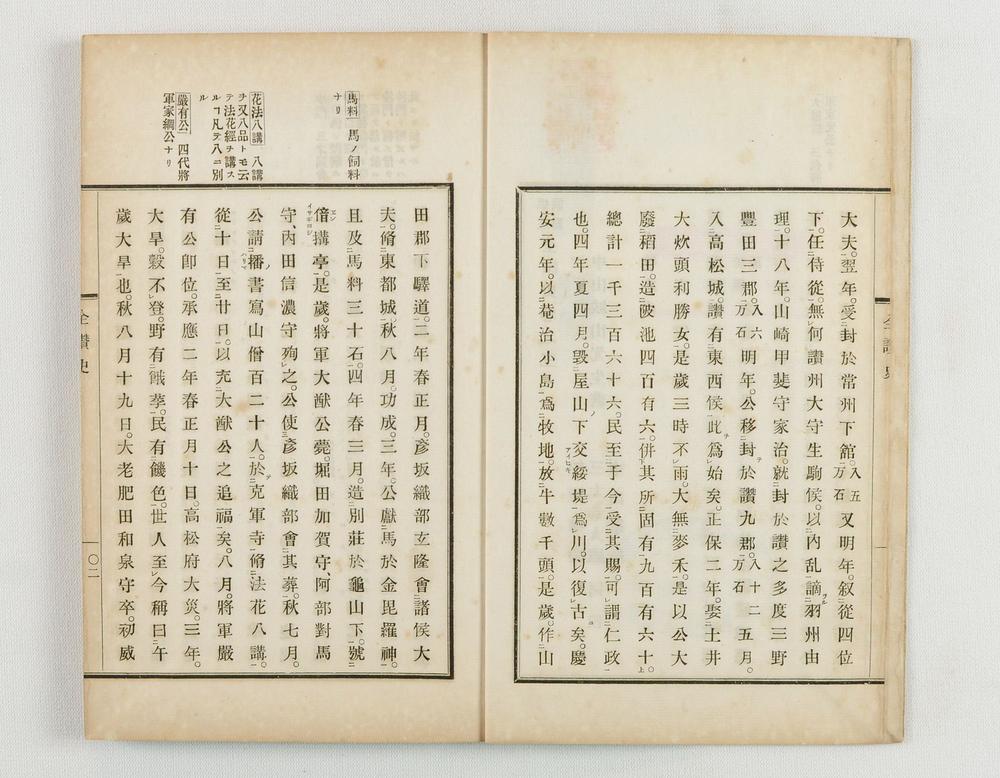 大夫。翌年。受封於常州下館。入五万石又明年。叙從四位
下。任侍從。無何讃州大守生駒侯。以內乱謫羽州由
理。十八年。山崎甲斐守家治。就封於讃之多度三野
豐田三郡。入六万石明年。公移封於讃九郡。入十二万石五月。
入高松城。讃有東西侯此爲始矣。正保二年。娶土井
大炊頭利勝女。是歲三時不雨。大無麥禾。是以公大
廢稻田。造陂池四百有六。併其所固有九百有六十。
總計一千三百六十六。民至于今受其賜。可謂仁政
也。四年夏四月。毀屋山下交綏堤爲川。以復古矣。慶
安元年。以菴治小島爲牧地。放牛數千頭。是歲。作山
田郡下驛道。二年春正月。彥坂織部玄隆會諸侯大
夫。脩東都城。秋八月。功成。三年。公獻馬於金毘羅神。
且及馬料三十石。四年春三月。造別莊於龜山下。號
偣搆亭。是歲。將軍大猷公薨。堀田加賀守、阿部對馬
守、內田信濃守殉之。公使彥坂織部會其葬。秋七月。
公請播書寫山僧百二十人。於克軍寺脩法花八講。
從十日至廿日。以充大猷公之追福矣。八月。將軍嚴
有公卽位。承應二年春正月十日。高松府大災。三年。
大旱。穀不登。野有餓莩。民有饑色。世人至今稱曰午
歲大旱也。秋八月十九日。大老肥田和泉守卒。初威
馬料 馬ノ飼料
ナリ
花法八講 八講
ヲ又八品トモ云
テ法花經ヲ講ス
ルヿ凡テ八ニ別
ル
嚴有公 四代將
軍家綱公ナリ
全讃史
一〇二